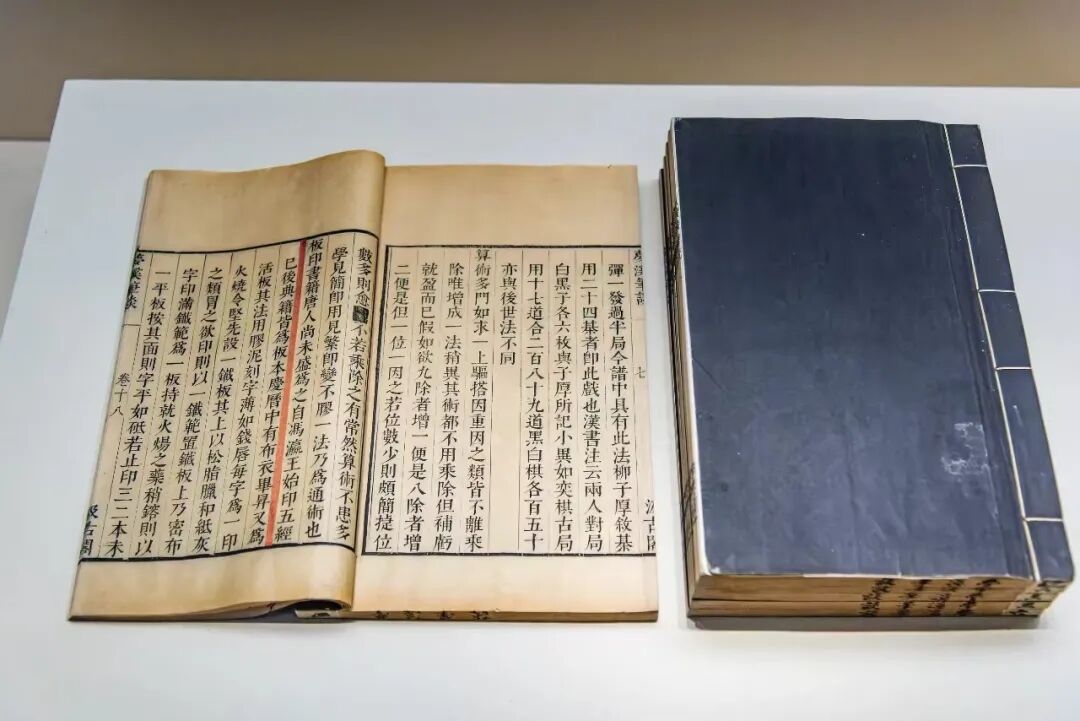 夢溪筆談 七 汲古閣
彈一發過半局今譜中具有此法柳子厚敘棊
用二十四棊者即此戲也漢書注云兩人對局
白黑子各六枚與子厚所記小異如弈棋古局
用十七道合二百八十九道黑白棋各百五十
亦與後世法不同
算術多門如求一上驅搭因重因之類皆不離乘
除唯增成一法稍異其術都不用乘除但補虧
就盈而已假如欲九除者增一便是八除者增
二便是但一位一因之若位數少則頗簡捷位
數多則愈不若乘除之有常然算術不患多
學見簡即用見繁即變不膠一法乃為通術也
板印書籍唐人尚未盛為之自馮瀛王始印五經
已後典籍皆為板本慶曆中有布衣畢昇又為
活板其法用膠泥刻字薄如錢唇每字為一印
火燒令堅先設一鐵板其上以松脂臘和紙灰
之類冒之欲印則以一鐵範置鐵板上乃密布
字印滿鐵範為一板持就火煬之藥稍鎔則以
一平板按其面則字平如砥若止印三二本未
夢溪筆談 卷十八 汲古閣